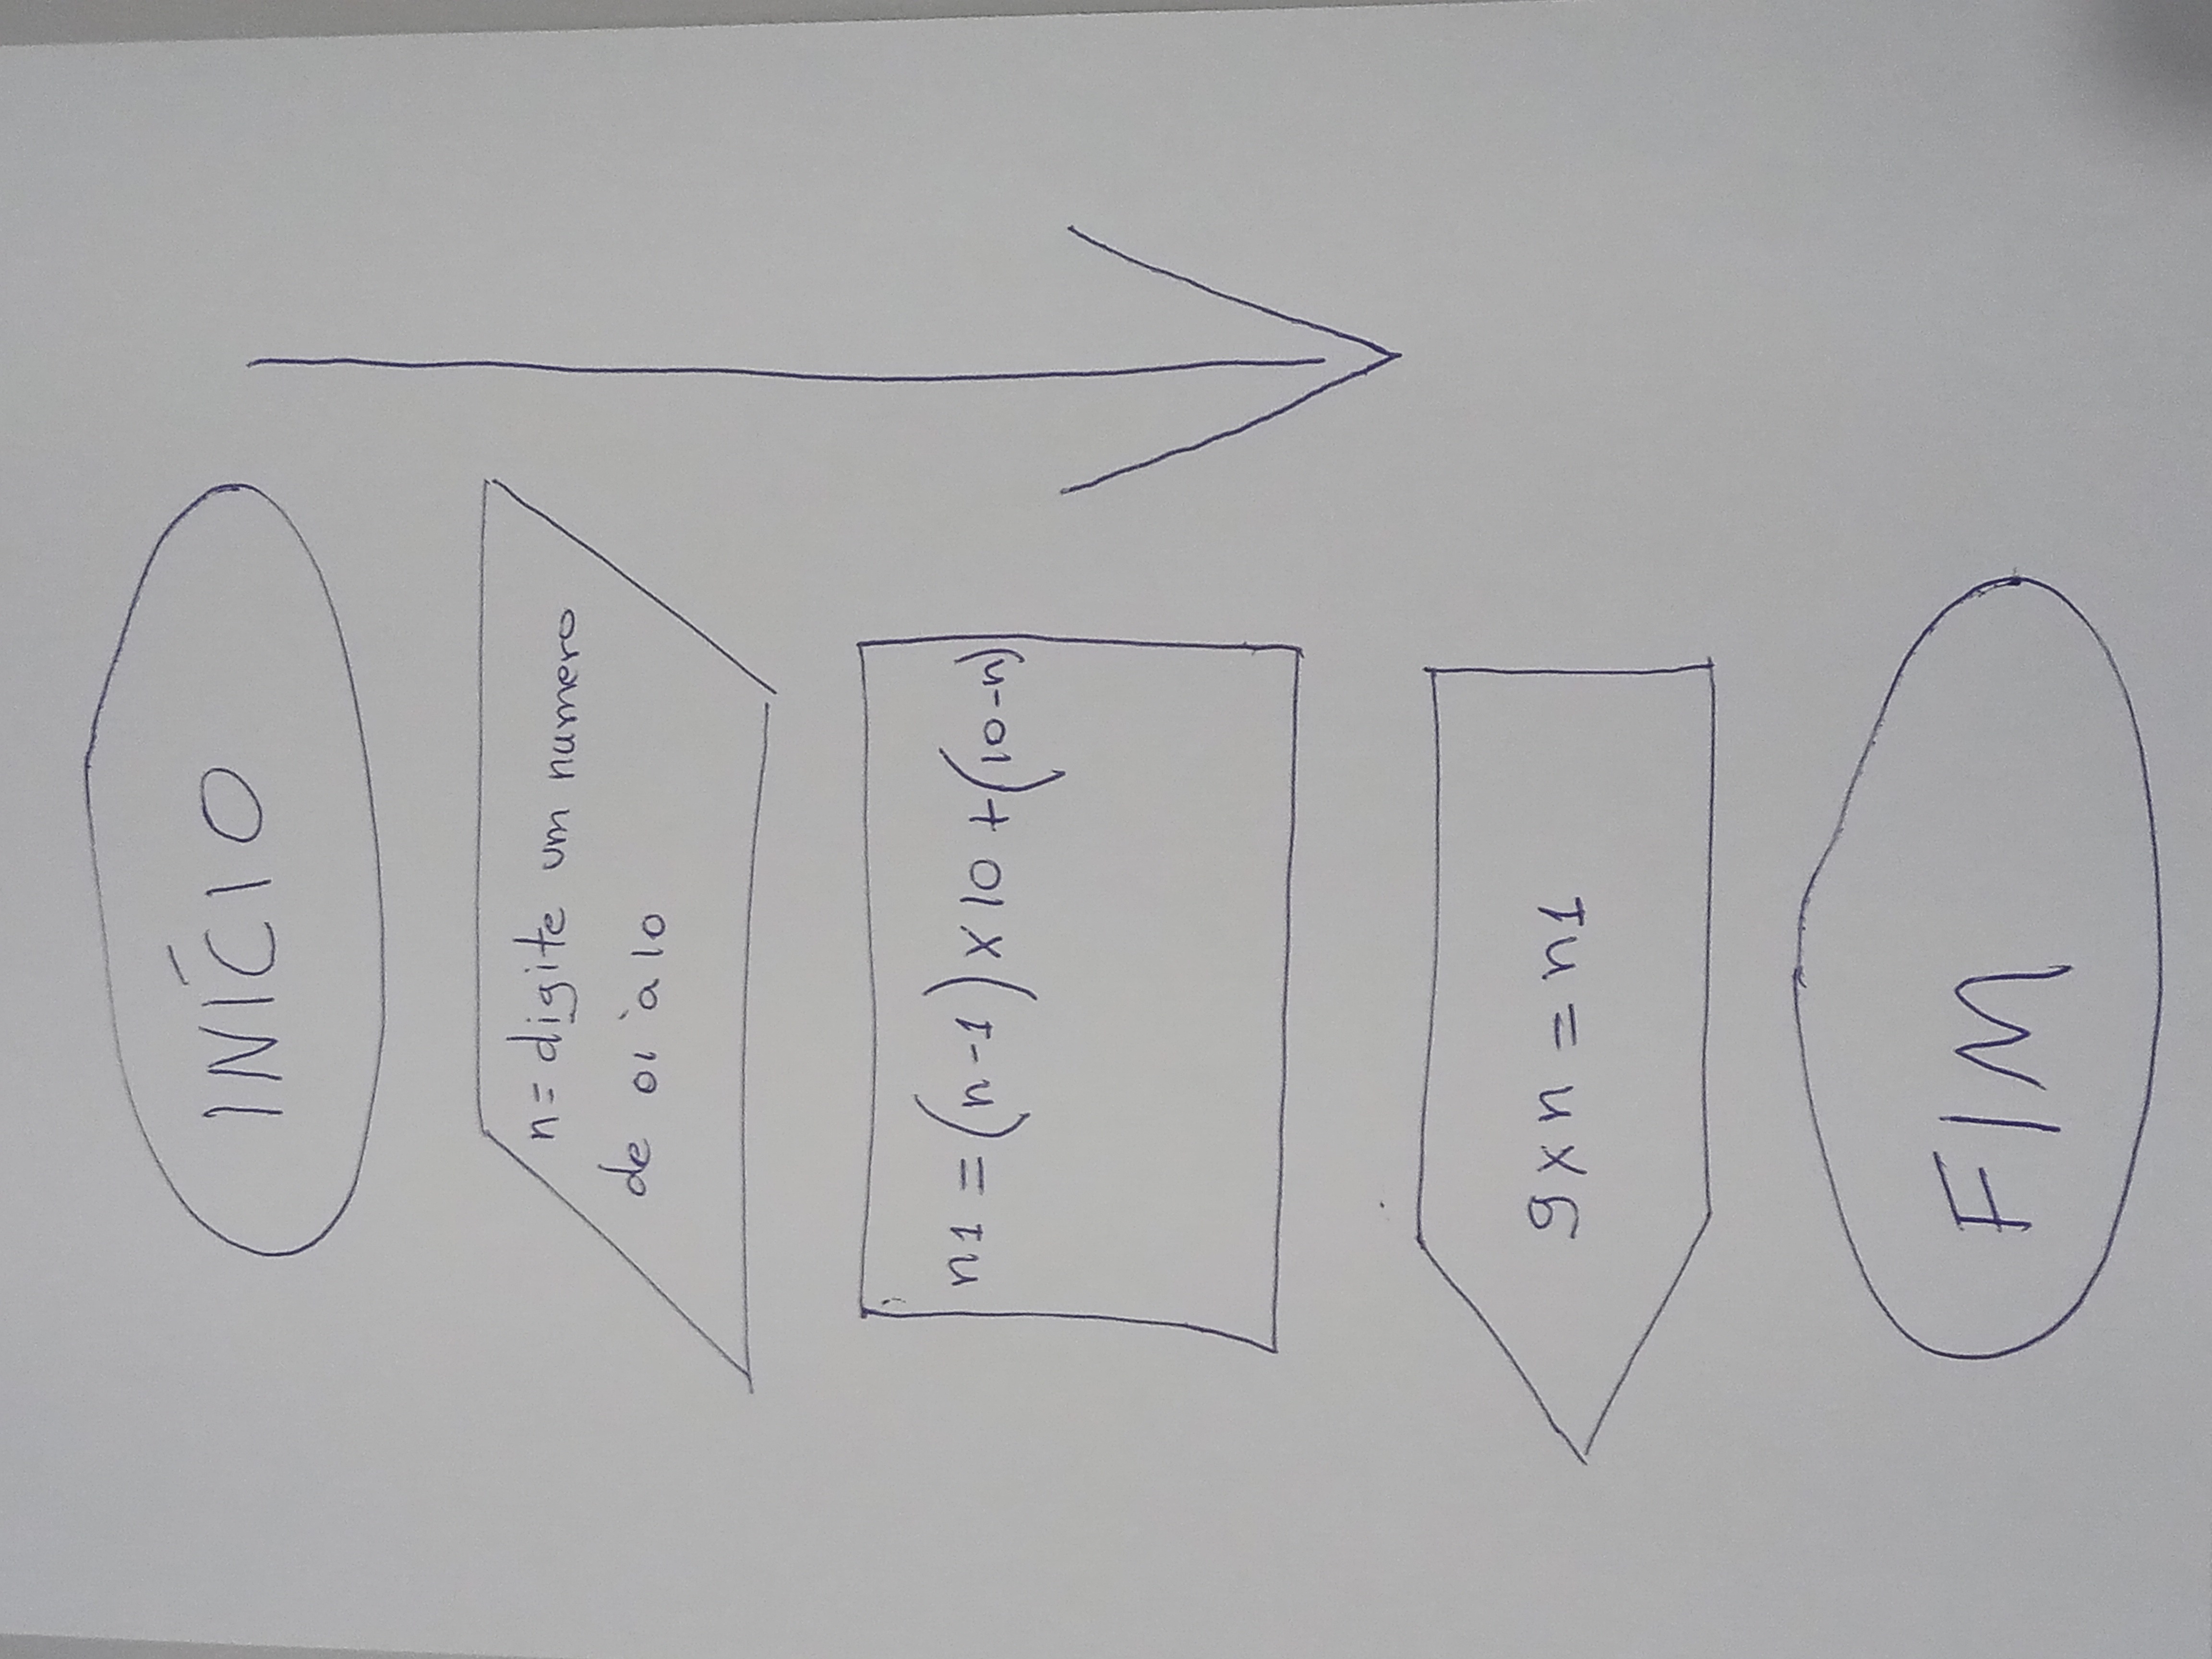 INÍCIO
n= digite um numero
de 01 à 10
n1 = (n-1) x 10 + (10-n)
9 x n = n1
FIM